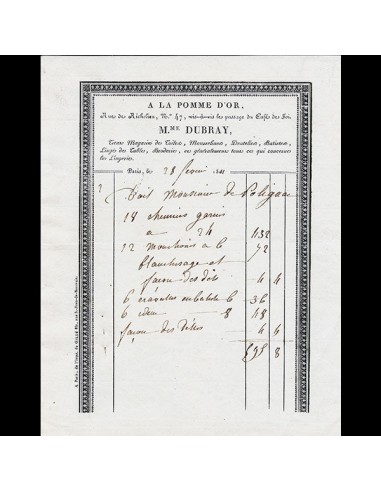 A LA POMME D'OR,
Rue de Richelieu, N.º 47, vis-à-vis le passage du Café de Foi.
M.ME DUBRAY,
Tient Magasin de Toiles, Mousselines, Dentelles, Batistes,
Linges de Tables, Broderies, et généralement tout ce qui concerne
la Lingerie.
Paris, le 28 février 181
Doit Monsieur de Polignac
18 chemises garnies
a 24 432
12 mouchoirs a 6 72
blanchissage et
façon des dits 4 4
6 cravattes en batiste 6 36
6 idem 8 48
façon des dittes 4
8